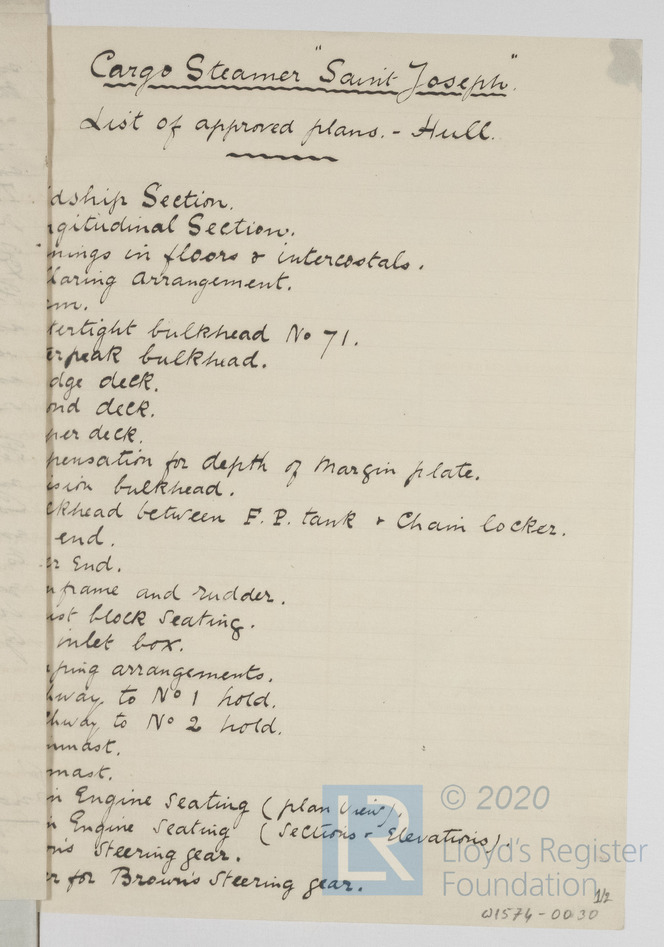 Cargo Steamer "Saint Joseph".
List of approved plans. - Hull.
dship Section.
gitudinal Section.
nings in floors & intercostals.
llaring arrangement.
tertight bulkhead No 71.
erpeak bulkhead.
dge deck.
ond deck.
per deck.
pensation for depth of Margin plate.
ision bulkhead.
ckhead between F. P. tank & Chain locker.
end.
er End.
n frame and rudder.
ust block seating.
inlet box.
ping arrangements.
hway to No 1 hold.
chway to No 2 hold.
nmast.
mast.
in Engine Seating (plan View).
n Engine Seating (Sections & Elevations).
on's Steering gear.
er for Brown's Steering gear.
LR
© 2020
Lloyd's Register
Foundation
1/2
W1574-0030